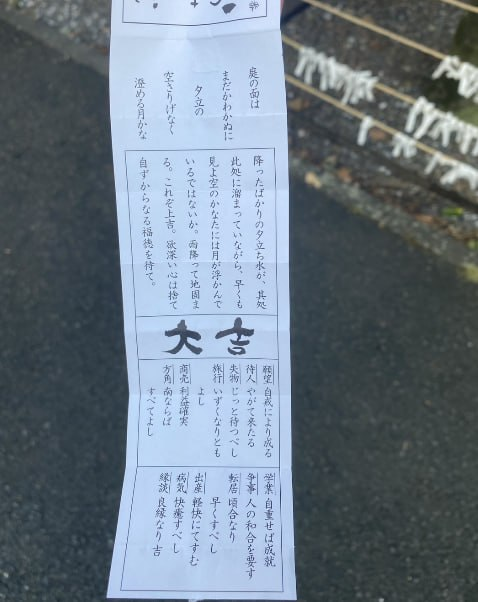 庭の面は
まだかわかぬに
夕立の
空さりげなく
澄める月かな
降ったばかりの夕立ち水が、其処
此処に溜まっていながら、早くも
見よ空のかなたには月が浮かんで
いるではないか。雨降って地固ま
る。これぞ上吉。欲深い心は捨て
自ずからなる福徳を待て。
大吉
願望 自戒により成る
待人 やがて来たる
失物 じっと待つべし
旅行 いずくなりとも
よし
商売 利益確実
方角 南ならば
すべてよし
学業 自重せば成就
争事 人の和合を要す
転居 頃合なり
早くすべし
出産 軽快にてすむ
病気 快癒すべし
縁談 良縁なり 吉